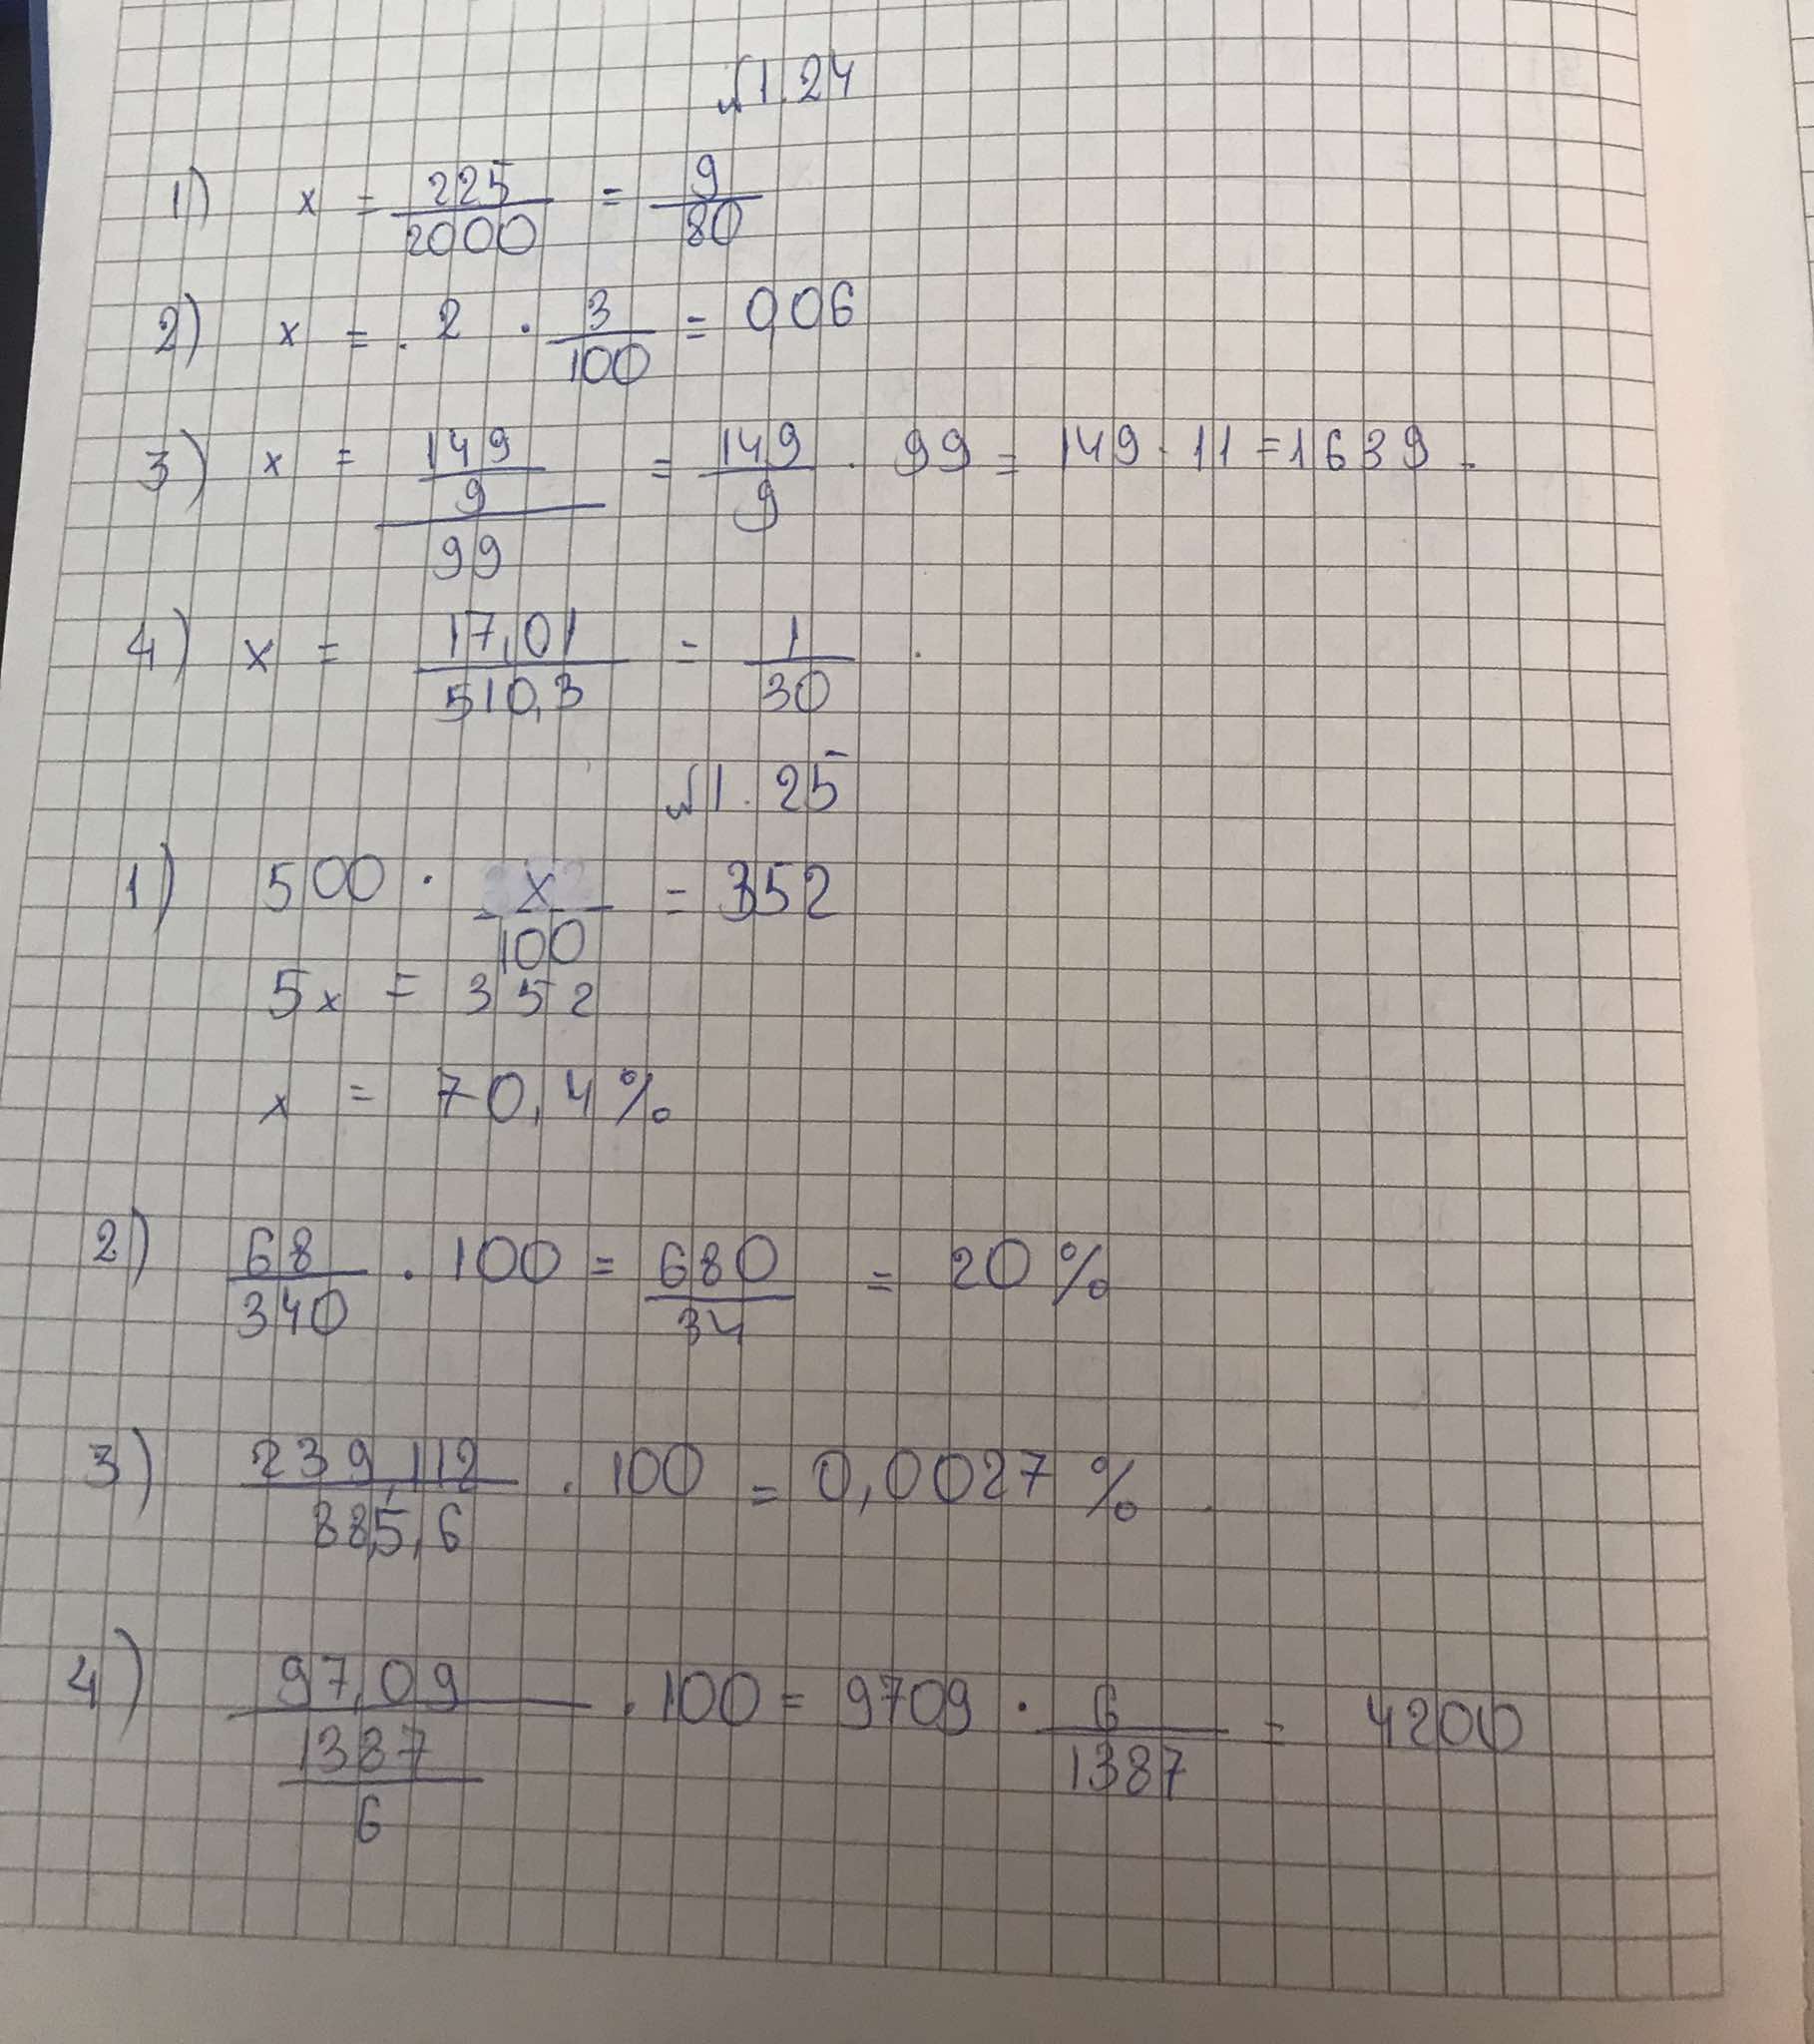 №1.24
1) x = 225/2000 = 9/80
2) x = . 2 · 3/100 = 0,06
3) x = (149/9)/99 = 149/9 · 99 = 149 · 11 = 1639.
4) x = 17,01/510,3 = 1/30 .
№1.25
1) 500 · x/100 = 352
5x = 352
x = 70,4%
2) 68/340 · 100 = 680/34 = 20%
3) 239,112/885,6 · 100 = 0,0027% .
4) 97,09/(1387/6) · 100 = 9709 · 6/1387 = 4200